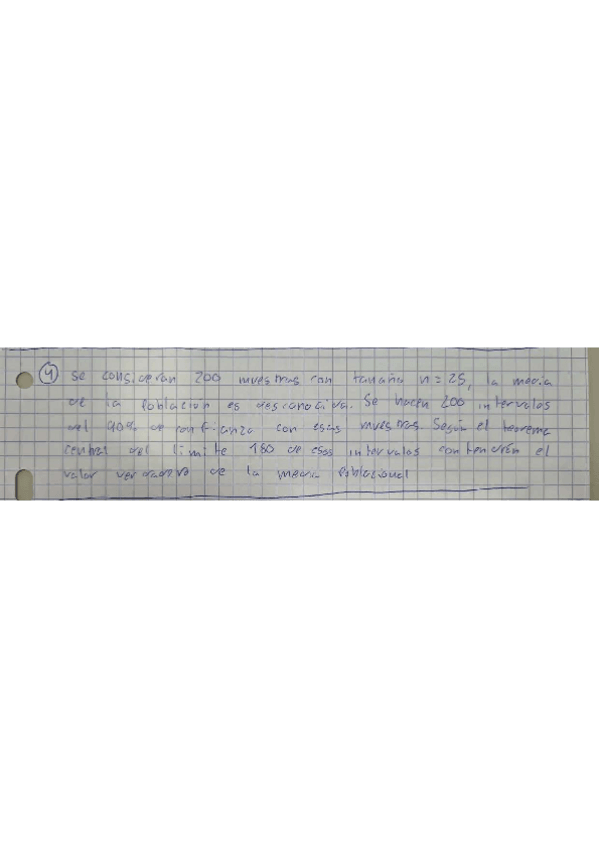 ④ Se consideran 200 muestras con tamaño n = 25, la media
de la población es desconocida. Se hacen 200 intervalos
del 90% de confianza con esas muestras. Según el teorema
central del limite 180 de esos intervalos contendrán el
valor verdadero de la media poblacional